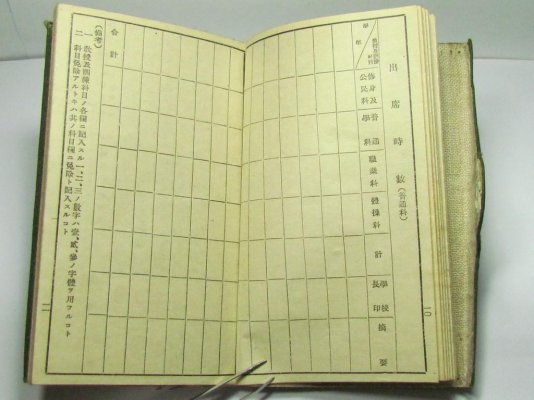 出席時數(普通科)
學年
教授及訓練科目
修身及公民科
普通學科
職業科
體操科
計
學校長印
摘要
一〇
合計
(備考)
一 教授及訓練科目ノ各欄ニ記入スル一、二、三ノ數字ハ壹、貳、參ノ字體ヲ用フルコト
二 科目免除アルトキハ其ノ科目欄ニ免除ト記入スルコト
一一